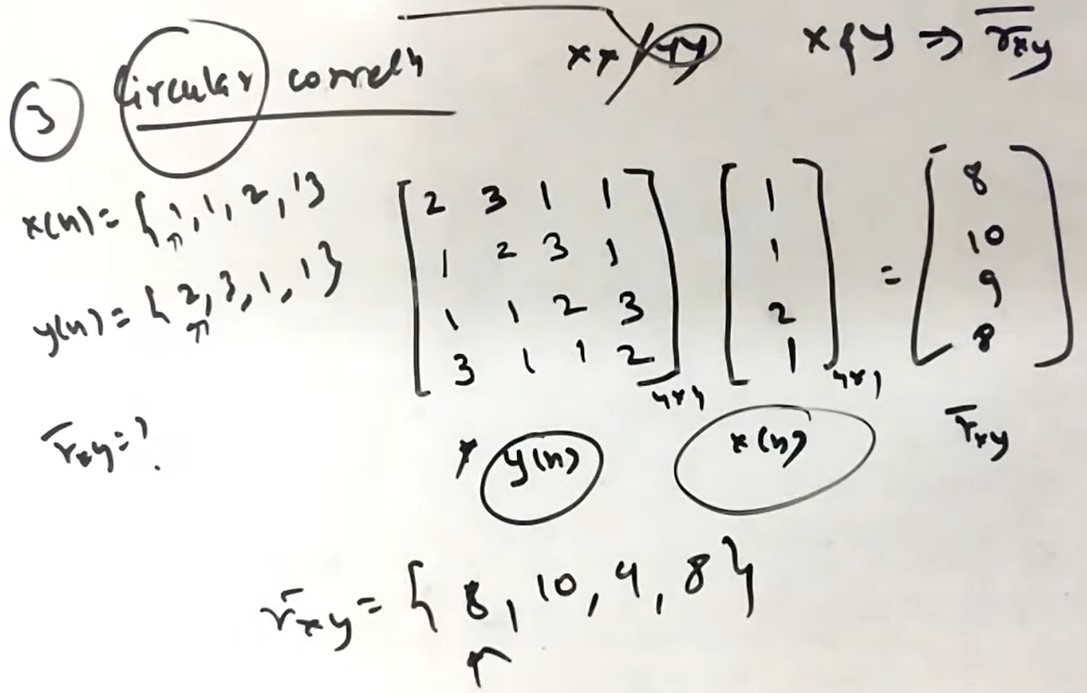 ③ Circular correln
xx/yy x{y ⇒ r̄xy
x(n) = {1, 1, 2, 1}
↑
y(n) = {2, 3, 1, 1}
↑
r̄xy = ?
[2 3 1 1
1 2 3 1
1 1 2 3
3 1 1 2]4x4
[1
1
2
1]4x1
=
[8
10
9
8]
y(n) x(n) r̄xy
r̄xy = {8, 10, 9, 8}
↑